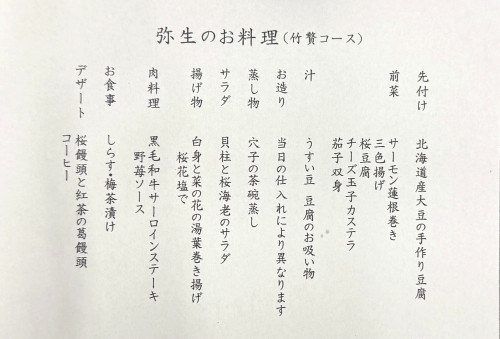 弥生のお料理（竹贅コース）
先付け　北海道産大豆の手作り豆腐
前菜　サーモン蓮根巻き
三色揚げ
桜豆腐
チーズ玉子カステラ
茄子双身
汁　うすい豆 豆腐のお吸い物
お造り　当日の仕入れにより異なります
蒸し物　穴子の茶碗蒸し
サラダ　貝柱と桜海老のサラダ
揚げ物　白身と菜の花の湯葉巻き揚げ
桜花塩で
肉料理　黒毛和牛サーロインステーキ
野苺ソース
お食事　しらす・梅茶漬け
デザート　桜饅頭と紅茶の葛饅頭
コーヒー